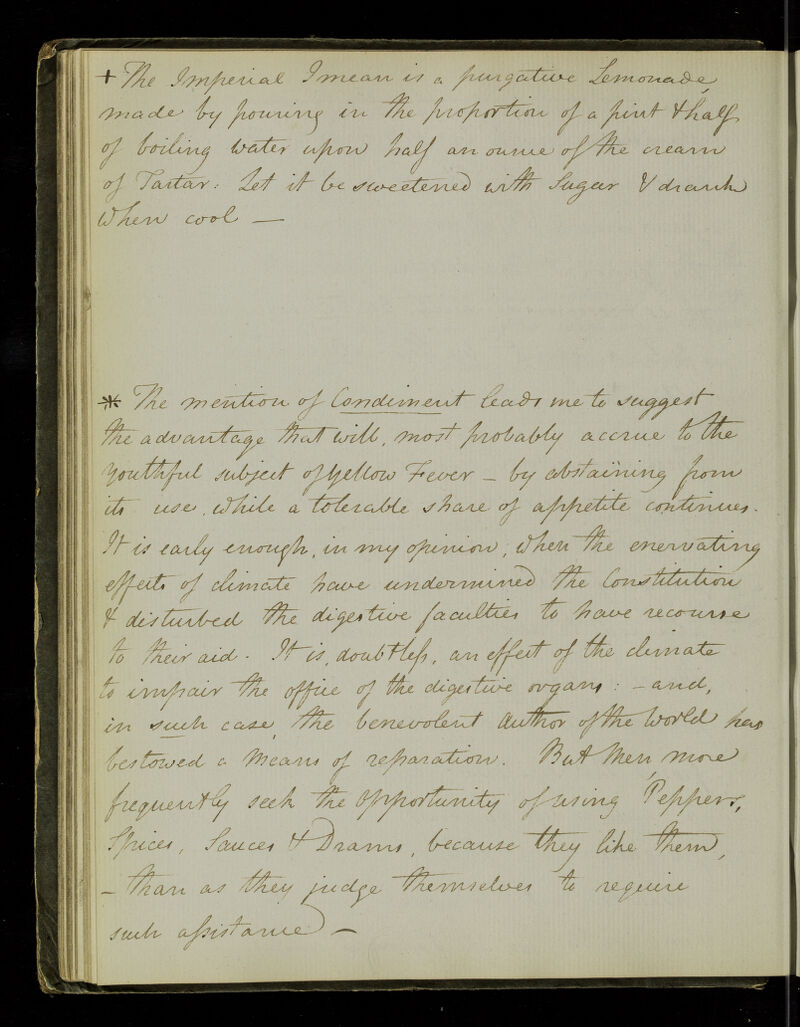 + The Imperial I mean is a purgative Lemonade,
made by pouring in the proportion of a pint & half
of boiling water upon half an ounce of the cream
of Tartar: Let it be sweetened with Sugar & drank
when cool —
* The mention of Condiment leads me to suggest
the advantage that will, most probably accrue to the
youthful subject of Yellow Fever – by abstaining from
its use, while a tolerable share of appetite continues.
It is early enough, in my opinion, when the enervating
effects of climate have undermined the Constitution
& disturbed the digestive faculties to have recourse
to their aid. It is, doubtless, an effect of the climate
to impair the office of the digestive organs: – and,
in such case, the benevolent Author of the World has
bestowed a Means of reparation. But Men, more
frequently seek the opportunity of using Peppers,
Spices, Sauces & Drams, because they like them,
– than as they judge themselves to require
such assistance —